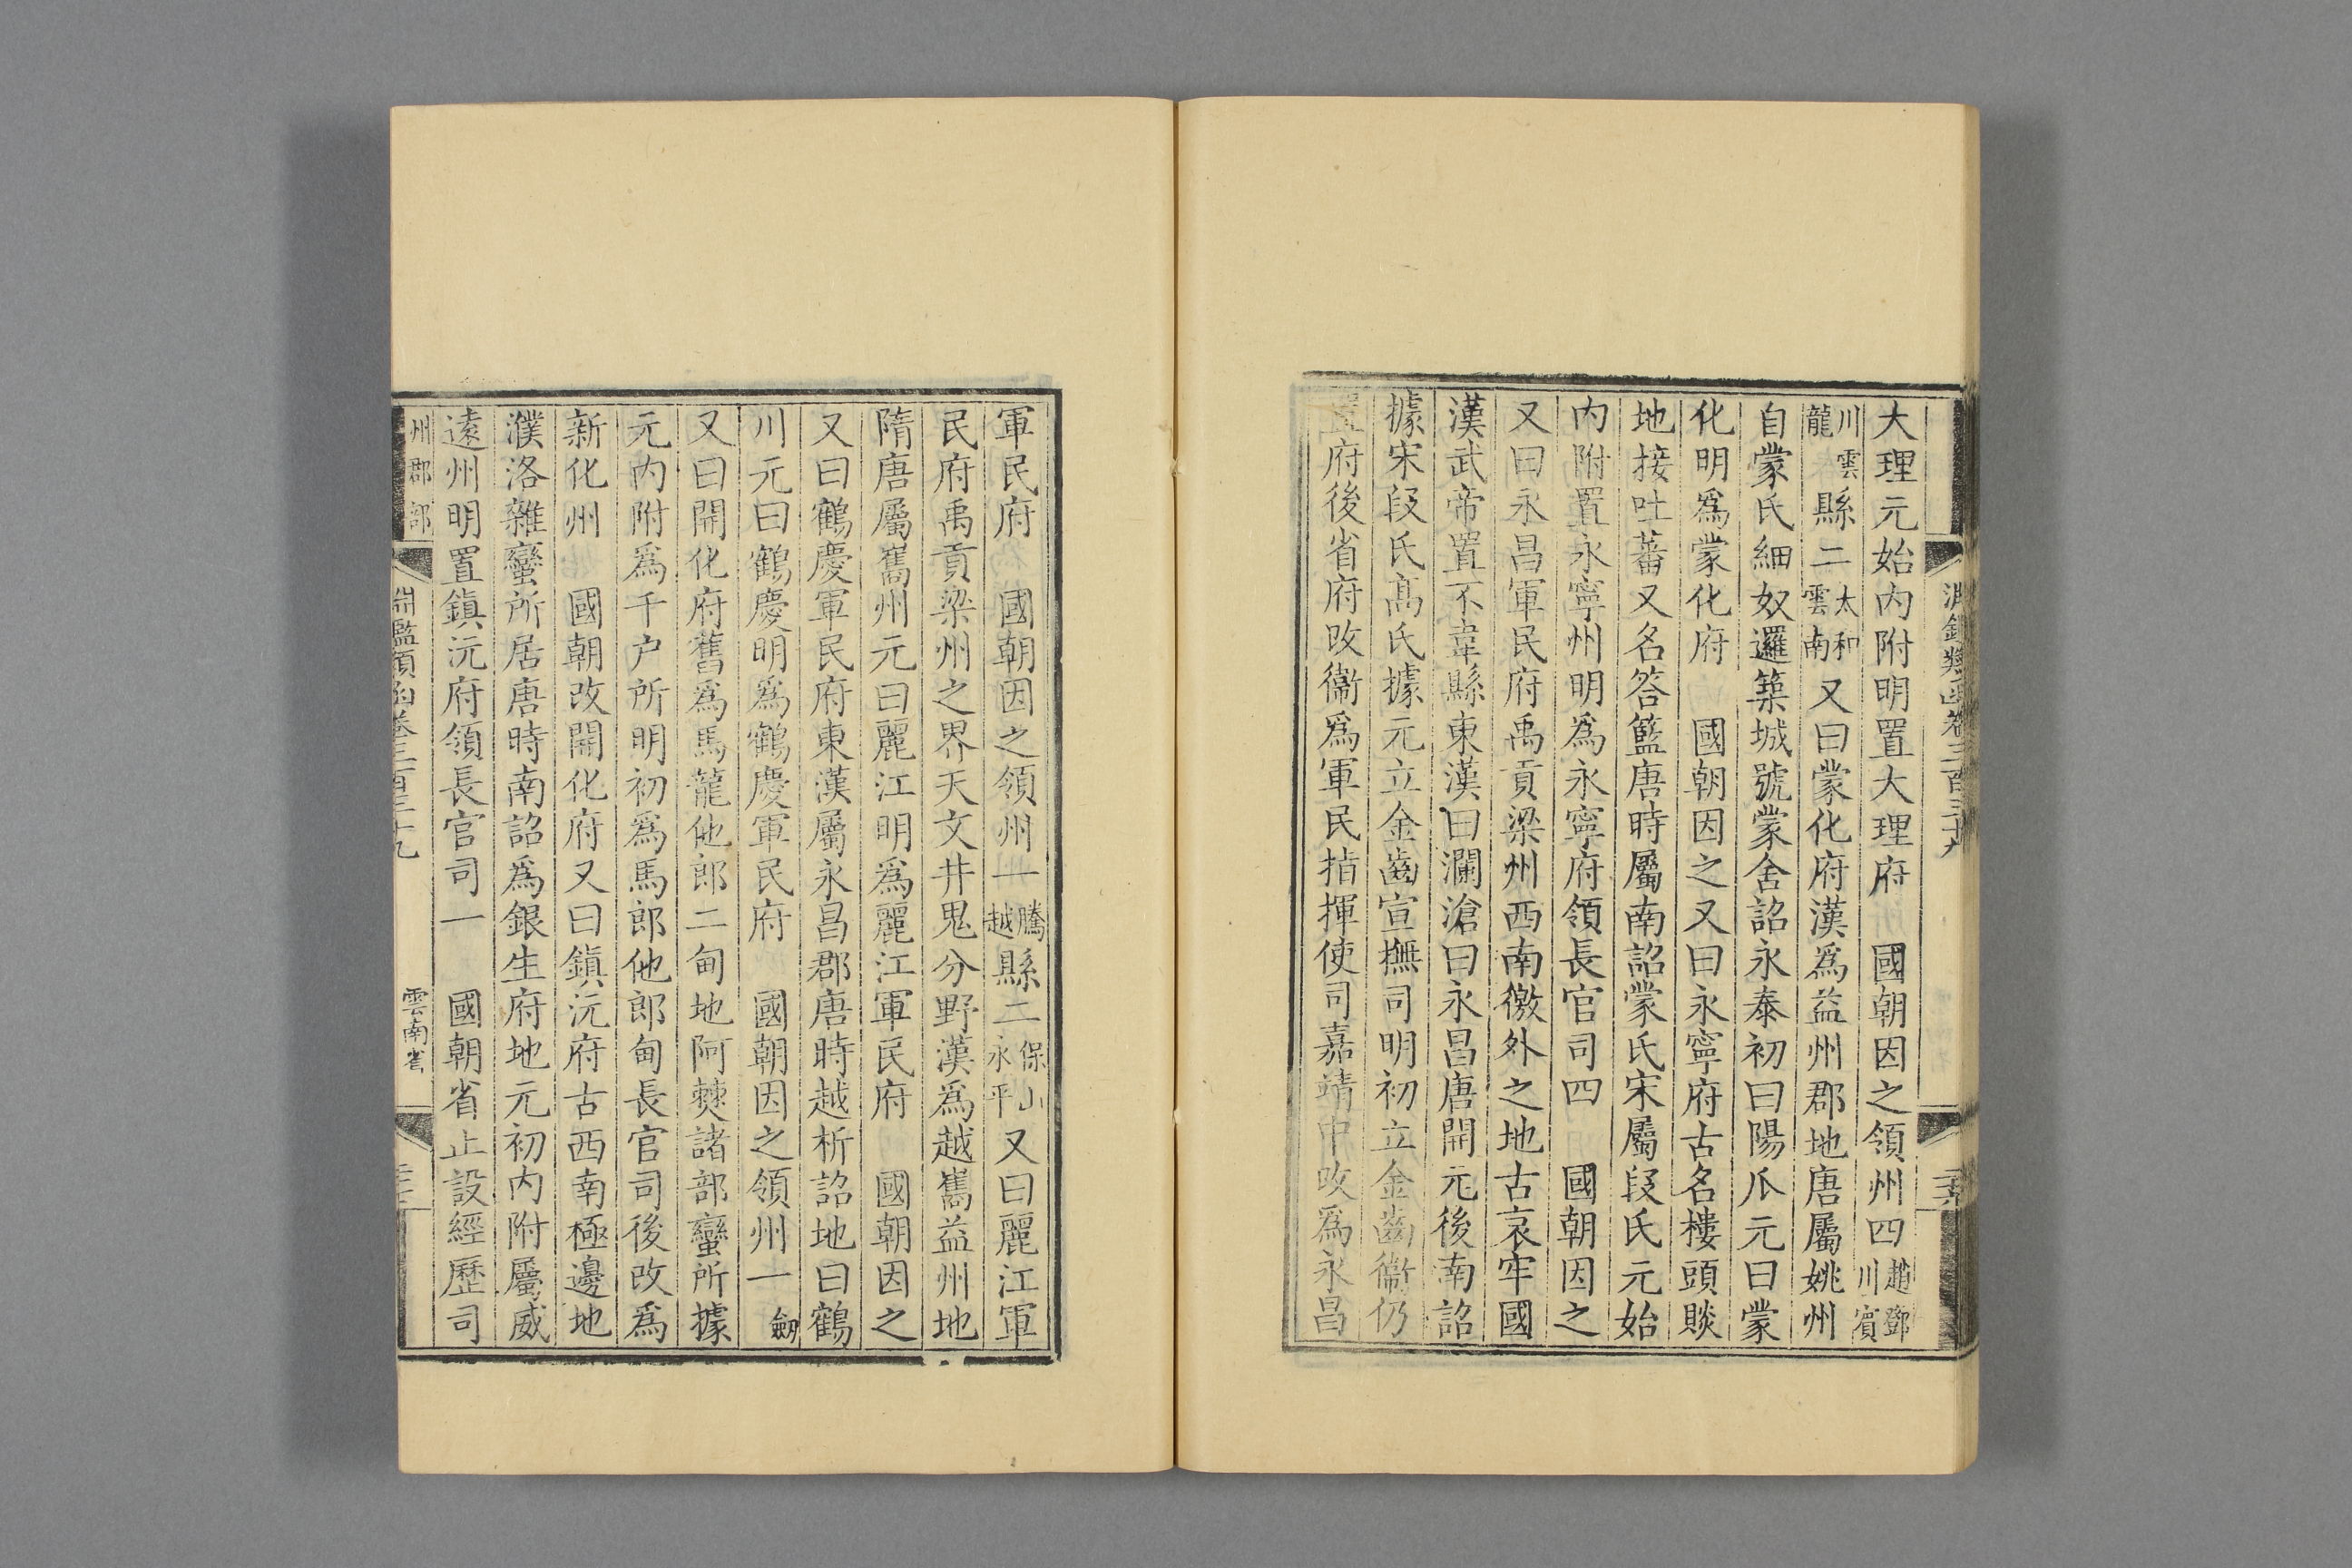 大理元始内附明置大理府　國朝因之領州四趙鄧川賓
川雲龍縣二太和雲南又曰蒙化府漢爲益州郡地唐屬姚州
自蒙氏細奴邏築城號蒙舍詔永泰初曰陽瓜元曰蒙
化明爲蒙化府　國朝因之又曰永寧府古名樓頭賧
地接吐蕃又名答籃唐時屬南詔蒙氏宋屬段氏元始
内附置永寧州明爲永寧府領長官司四　國朝因之
又曰永昌軍民府禹貢梁州西南徼外之地古哀牢國
漢武帝置不韋縣東漢曰瀾滄曰永昌唐開元後南詔
據宋段氏高氏據元立金齒宣撫司明初立金齒衞仍
置府後省府改衞爲軍民指揮使司嘉靖中改爲永昌
軍民府　國朝因之領州一騰越縣二保山永平又曰麗江軍
民府禹貢梁州之界天文井鬼分野漢爲越巂益州地
隋唐屬巂州元曰麗江明爲麗江軍民府　國朝因之
又曰鶴慶軍民府東漢屬永昌郡唐時越析詔地曰鶴
川元曰鶴慶明爲鶴慶軍民府　國朝因之領州一劒
又曰開化府舊爲馬龍他郎二甸地阿僰諸部蠻所據
元内附爲千户所明初爲馬郎他郎甸長官司後改爲
新化州　國朝改開化府又曰鎮沅府古西南極邊地
濮洛雜蠻所居唐時南詔爲銀生府地元初内附屬威
遠州明置鎮沅府領長官司一　國朝省止設經歷司
州郡部
淵鑑類函卷三百三十九
雲南省